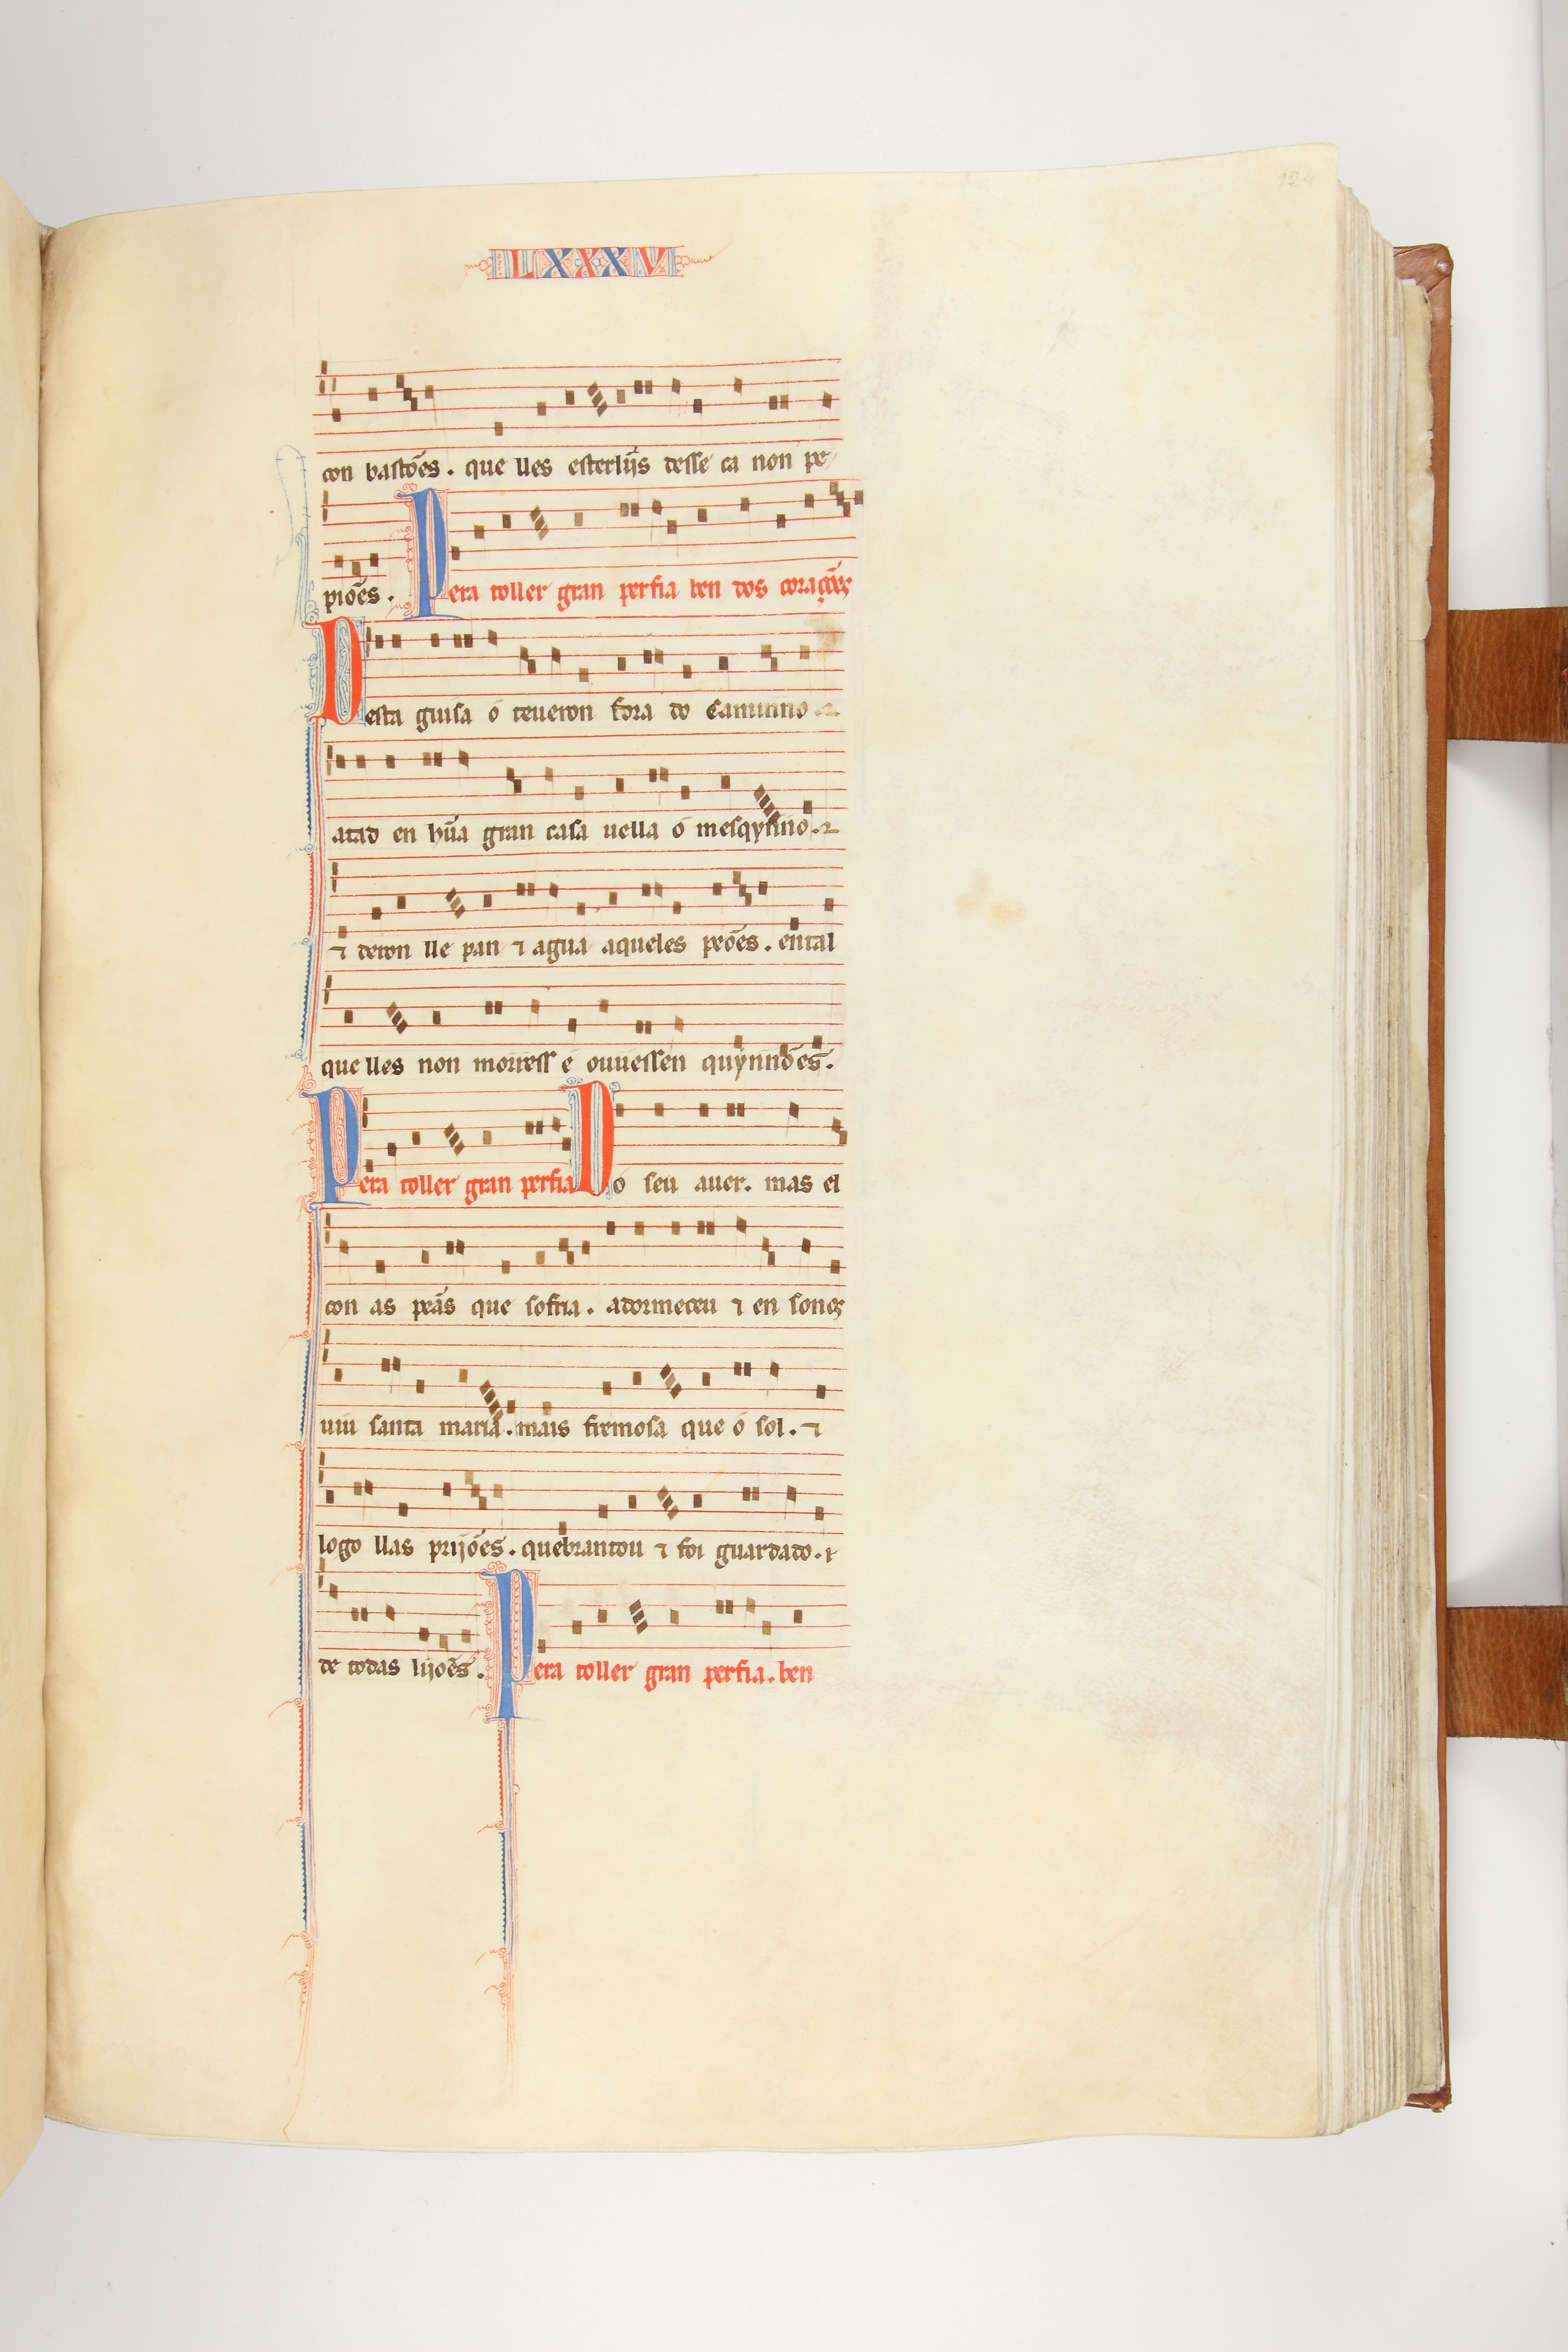 124
LXXXV
con bastões. que lles esterlĩjs desse ca non pe
piões. Pera toller gran perfia ben dos corações
Desta guisa o teueron fora do Camỹno ⁊
atad en hũa gran casa uella o mesqỹno. ⁊
⁊ deron lle pan ⁊ agua aqueles peões. ental
que lles non morress e ouuessen quỹnnões.
Pera toller gran perfia Do seu auer. mas el
con as pẽas que sofria. adormeceu ⁊ en sonos
uiu santa maria. mais fremosa que o sol. ⁊
logo llas prijões. quebrantou ⁊ foi guardado. ⁊
de todas lijões. Pera toller gran perfia. ben